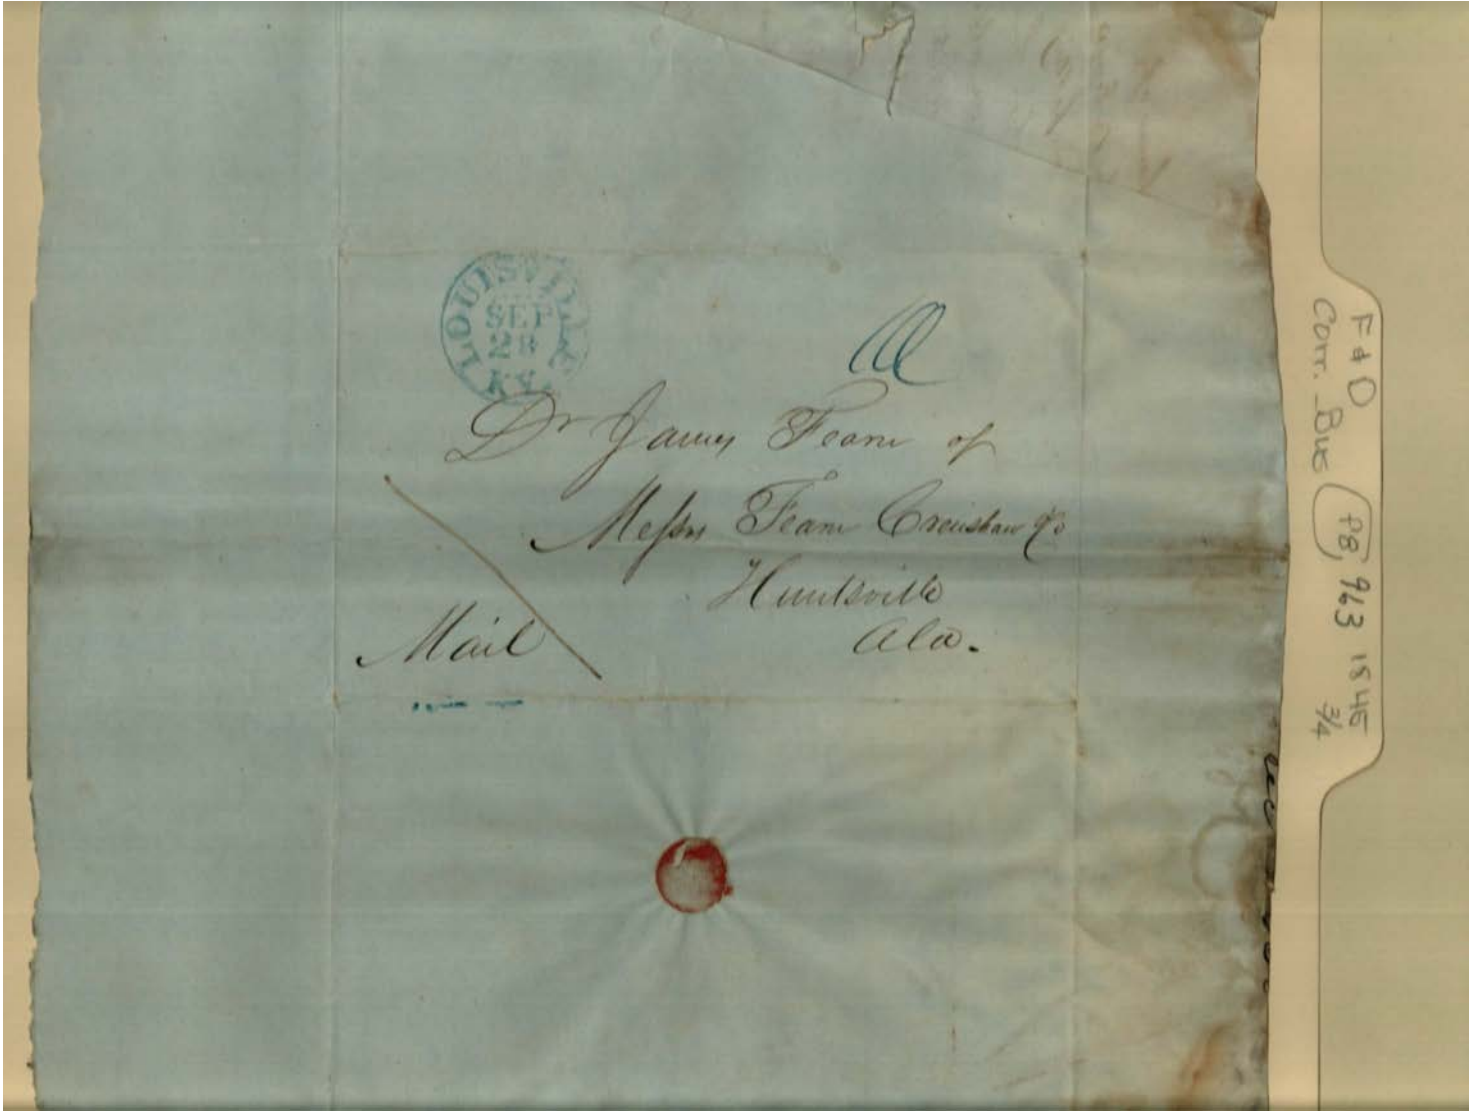 LOUISVILLE
SEP
28
KY.
Dr James Fearn of
Messrs Fearn Crenshaw & Co
Huntsville
Ala.
Mail
F & D
Corr. - Bus
P8, 963 1845
3/4